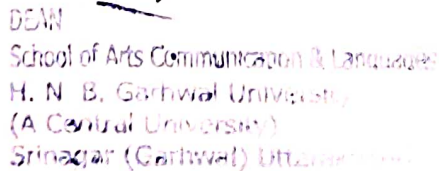 DEAN
School of Arts Communication & Languages
H. N. B. Garhwal University
(A Central University)
Srinagar (Garhwal)